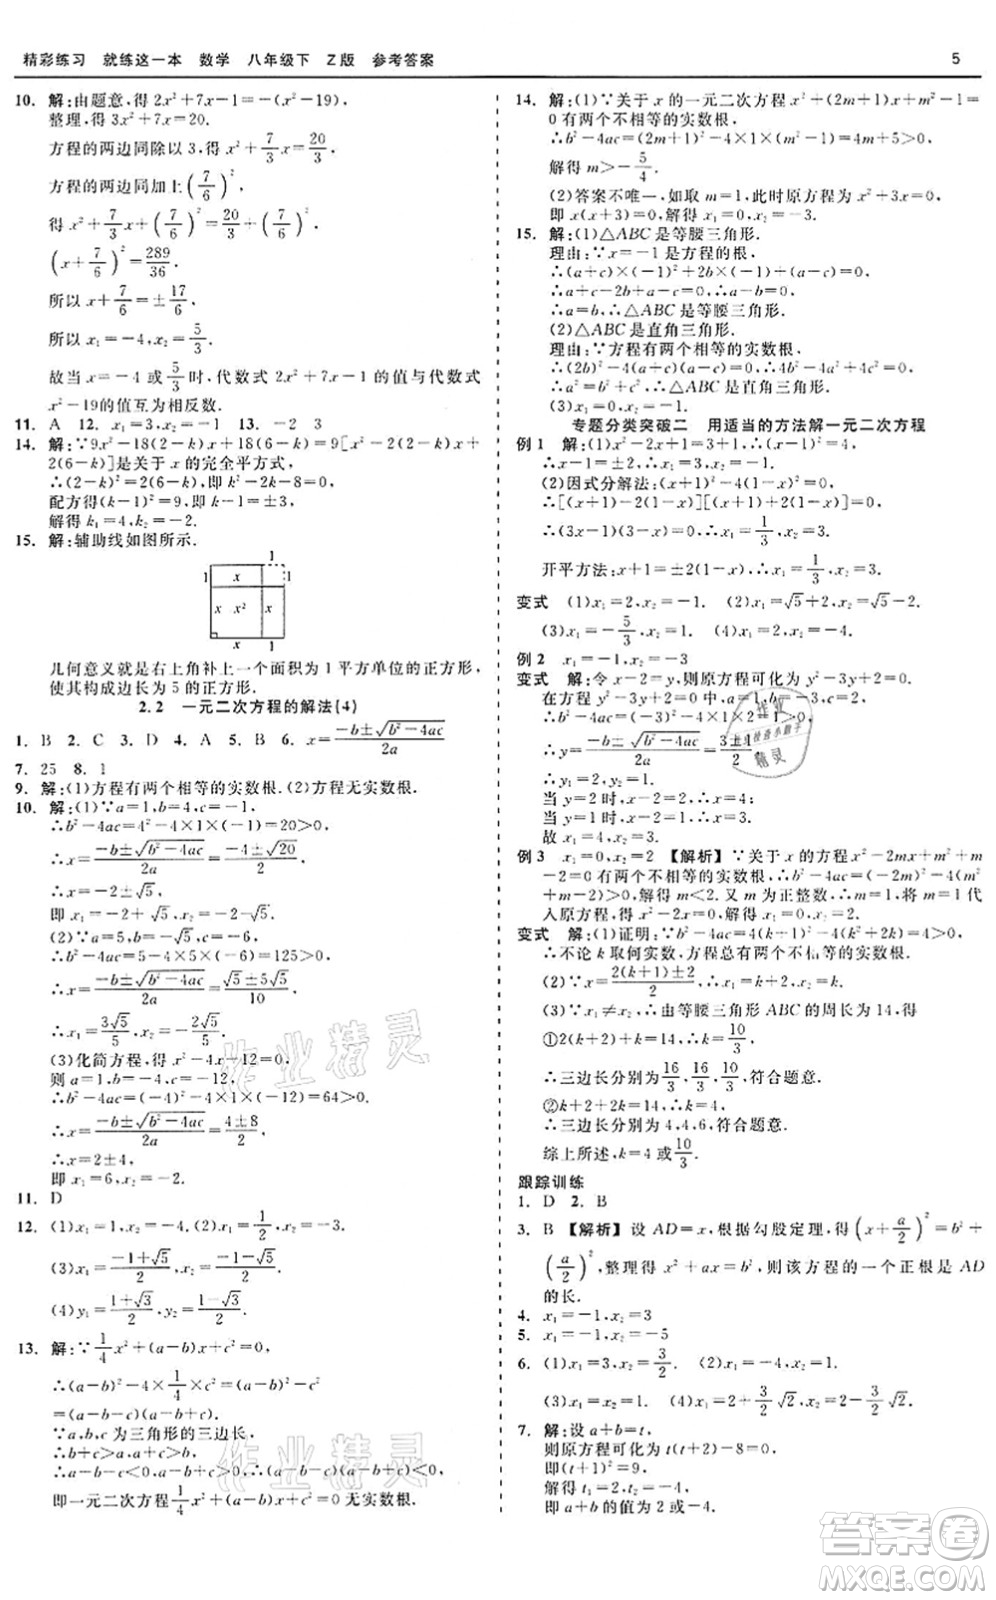 精彩练习 就练这一本 数学 八年级下 Z版 参考答案 5
10. 解:由题意,得2x²+7x-1=-(x²-19).
整理,得3x²+7x=20.
方程的两边同除以3,得x²+7/3x=20/3.
方程的两边同加上(7/6)²,
得x²+7/3x+(7/6)²=20/3+(7/6)²,
(x+7/6)²=289/36.
所以x+7/6=±17/6.
所以x₁=-4,x₂=5/3.
故当x=-4或5/3时,代数式2x²+7x-1的值与代数式
x²-19的值互为相反数.
11. A 12. x₁=3,x₂=-1 13. -2
14. 解:∵9x²-18(2-k)x+18(6-k)=9[x²-2(2-k)x+
2(6-k)]是关于x的完全平方式,
∴(2-k)²=2(6-k),即k²-2k-8=0,
配方得(k-1)²=9,即k-1=±3,
解得k₁=4,k₂=-2.
15. 解:辅助线如图所示.
1
1 x 1
x x² x
x 1
几何意义就是右上角补上一个面积为1平方单位的正方形,
使其构成边长为5的正方形.
2.2 一元二次方程的解法(4)
1. B 2. C 3. D 4. A 5. B 6. x=(-b±√(b²-4ac))/2a
7. 25 8. 1
9. 解:(1)方程有两个相等的实数根.(2)方程无实数根.
10. 解:(1)∵a=1,b=4,c=-1,
∴b²-4ac=4²-4×1×(-1)=20>0,
∴x=(-b±√(b²-4ac))/2a=(-4±√20)/2,
∴x=-2±√5,
即x₁=-2+√5,x₂=-2-√5.
(2)∵a=5,b=-√5,c=-6,
∴b²-4ac=5-4×5×(-6)=125>0,
∴x=(-b±√(b²-4ac))/2a=(√5±5√5)/10,
∴x₁=3√5/5,x₂=-2√5/5.
(3)化简方程,得x²-4x-12=0,
则a=1,b=-4,c=-12,
∴b²-4ac=(-4)²-4×1×(-12)=64>0,
∴x=(-b±√(b²-4ac))/2a=(4±8)/2,
∴x=2±4,
即x₁=6,x₂=-2.
11. D
12. (1)x₁=1,x₂=-4 (2)x₁=1/2,x₂=-1
(3)x₁=(-1+√5)/2,x₂=(-1-√5)/2
(4)y₁=(1+√3)/2,y₂=(1-√3)/2
13. 解:∵1/4x²+(a-b)x+c²=0,
∴(a-b)²-4×1/4×c²=(a-b)²-c²
=(a-b-c)(a-b+c).
∵a,b,c为三角形的三边长,
∴b+c>a,a+c>b,
∴a-b-c<0,a-b+c>0,
∴(a-b-c)(a-b+c)<0,
即一元二次方程1/4x²+(a-b)x+c²=0无实数根.
14. 解:(1)∵关于x的一元二次方程x²+(2m+1)x+m²-1=
0有两个不相等的实数根,
∴b²-4ac=(2m+1)²-4×1×(m²-1)=4m+5>0,
解得m>-5/4.
(2)答案不唯一,如取m=1,此时原方程为x²+3x=0,
即x(x+3)=0,解得x₁=0,x₂=-3.
15. 解:(1)△ABC是等腰三角形.
理由:∵x=-1是方程的根,
∴(a+c)×(-1)²+2b×(-1)+(a-c)=0,
∴a+c-2b+a-c=0,∴a-b=0,
∴a=b,∴△ABC是等腰三角形.
(2)△ABC是直角三角形.
理由:∵方程有两个相等的实数根,
∴(2b)²-4(a+c)(a-c)=0,
∴a²=b²+c²,∴△ABC是直角三角形.
(3)x₁=0,x₂=-1.
专题分类突破二 用适当的方法解一元二次方程
例1 解:(1)x²-2x+1=3+1,∴(x-1)²=4,
∴x-1=±2,∴x₁=3,x₂=-1.
(2)因式分解法:(x+1)²-4(x-1)²=0,
∴[(x+1)-2(x-1)][(x+1)+2(x-1)]=0,
∴(3-x)(3x-1)=0,∴x₁=1/3,x₂=3.
开平方法:x+1=±2(x-1),∴x₁=1/3,x₂=3.
变式 (1)x₁=2,x₂=-1. (2)x₁=√5+2,x₂=√5-2.
(3)x₁=5/6,x₂=-1/2. (4)x₁=2,x₂=-4.
例2 x₁=-1,x₂=-3
变式 解:令x-2=y,则原方程可化为y²-3y+2=0.
在方程y²-3y+2=0中,a=1,b=-3,c=2,
∴y=(-b±√(b²-4ac))/2a
∴y₁=2,y₂=1.
当y=2时,x-2=2,∴x=4;
当y=1时,x-2=1,∴x=3.
故x₁=4,x₂=3.
例3 x₁=0,x₂=2 【解析】∵关于x的方程x²-2mx+m²+m
-2=0有两个不相等的实数根,∴b²-4ac=(-2m)²-4(m²
+m-2)>0,解得m<2.又m为正整数,∴m=1,将m=1代
入原方程,得x²-2x=0,解得x₁=0,x₂=2.
变式 解:(1)证明:∵b²-4ac=4(k+1)²-4(k²+2k)=4>0,
∴不论k取何实数,方程总有两个不相等的实数根.
(2)∵x=(2(k+1)±2)/2,∴x₁=k+2,x₂=k.
(3)∵x₁≠x₂,∴由等腰三角形ABC的周长为14,得
①2(k+2)+k=14,∴k=10/3,
∴三边长分别为16/3,16/3,10/3,符合题意.
②k+2+2k=14,∴k=4,
∴三边长分别为4,4,6,符合题意.
综上所述,k=4或k=10/3.
跟踪训练
1. D 2. B
3. B 【解析】设AD=x,根据勾股定理,得(x+a/2)²=b²+
(a/2)²,整理得x²+ax=b²,则该方程的一个正根是AD
的长.
4. x₁=-1,x₂=3
5. x₁=-1,x₂=-5
6. (1)x₁=3,x₂=3/2. (2)x₁=4,x₂=-1.
(3)x₁=3/2√2,x₂=-1/2√2. (4)x₁=0,x₂=-2.
7. 解:设a+b=t,
则原方程可化为t(t+2)-8=0,
即(t+1)²=9,
解得t₁=2,t₂=-4,
即a+b的值为2或-4.
作业精灵
作业精灵
作业
精灵
答案圈
MXQE.COM